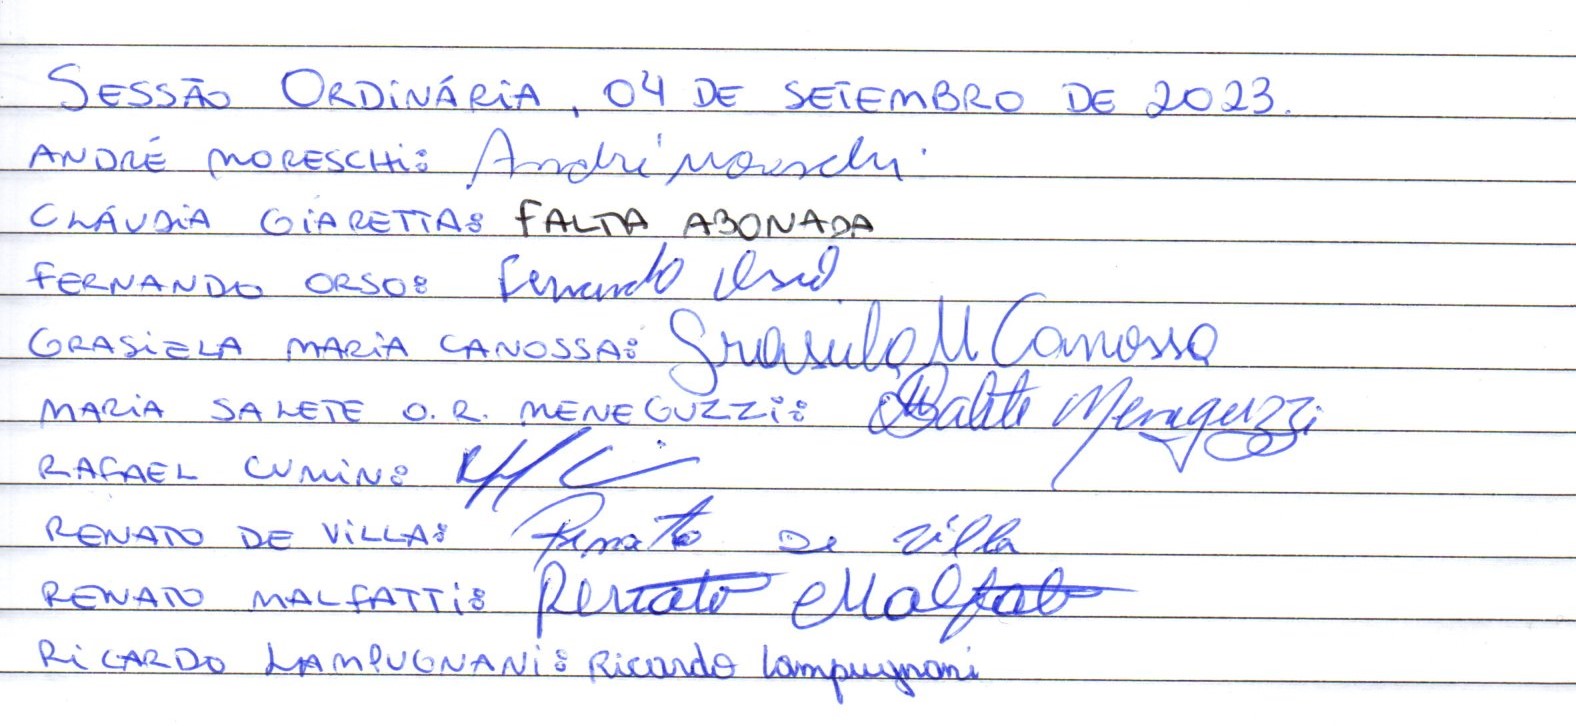 SESSÃO ORDINÁRIA, 04 DE SETEMBRO DE 2023.
ANDRÉ MORESCHI: André Moreschi
CLÁUDIA GIARETTA: FALTA ABONADA
FERNANDO ORSO: Fernando Orso
GRASIELA MARIA CANOSSA: Grasiela M Canossa
MARIA SALETE O. R. MENEGUZZI: MSalete Meneguzzi
RAFAEL CUMIN:
RENATO DE VILLA: Renato De Villa
RENATO MALFATTI: Renato Malfatti
RICARDO LAMPUGNANI: Ricardo Lampugnani